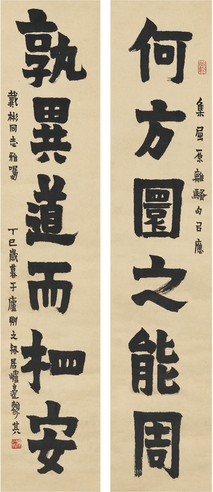 集屈原離騷句以應
何方圜之能周
孰異道而相安
戴彬同志雅囑 丁巳歲暮于廬州之居爐邊賴少其